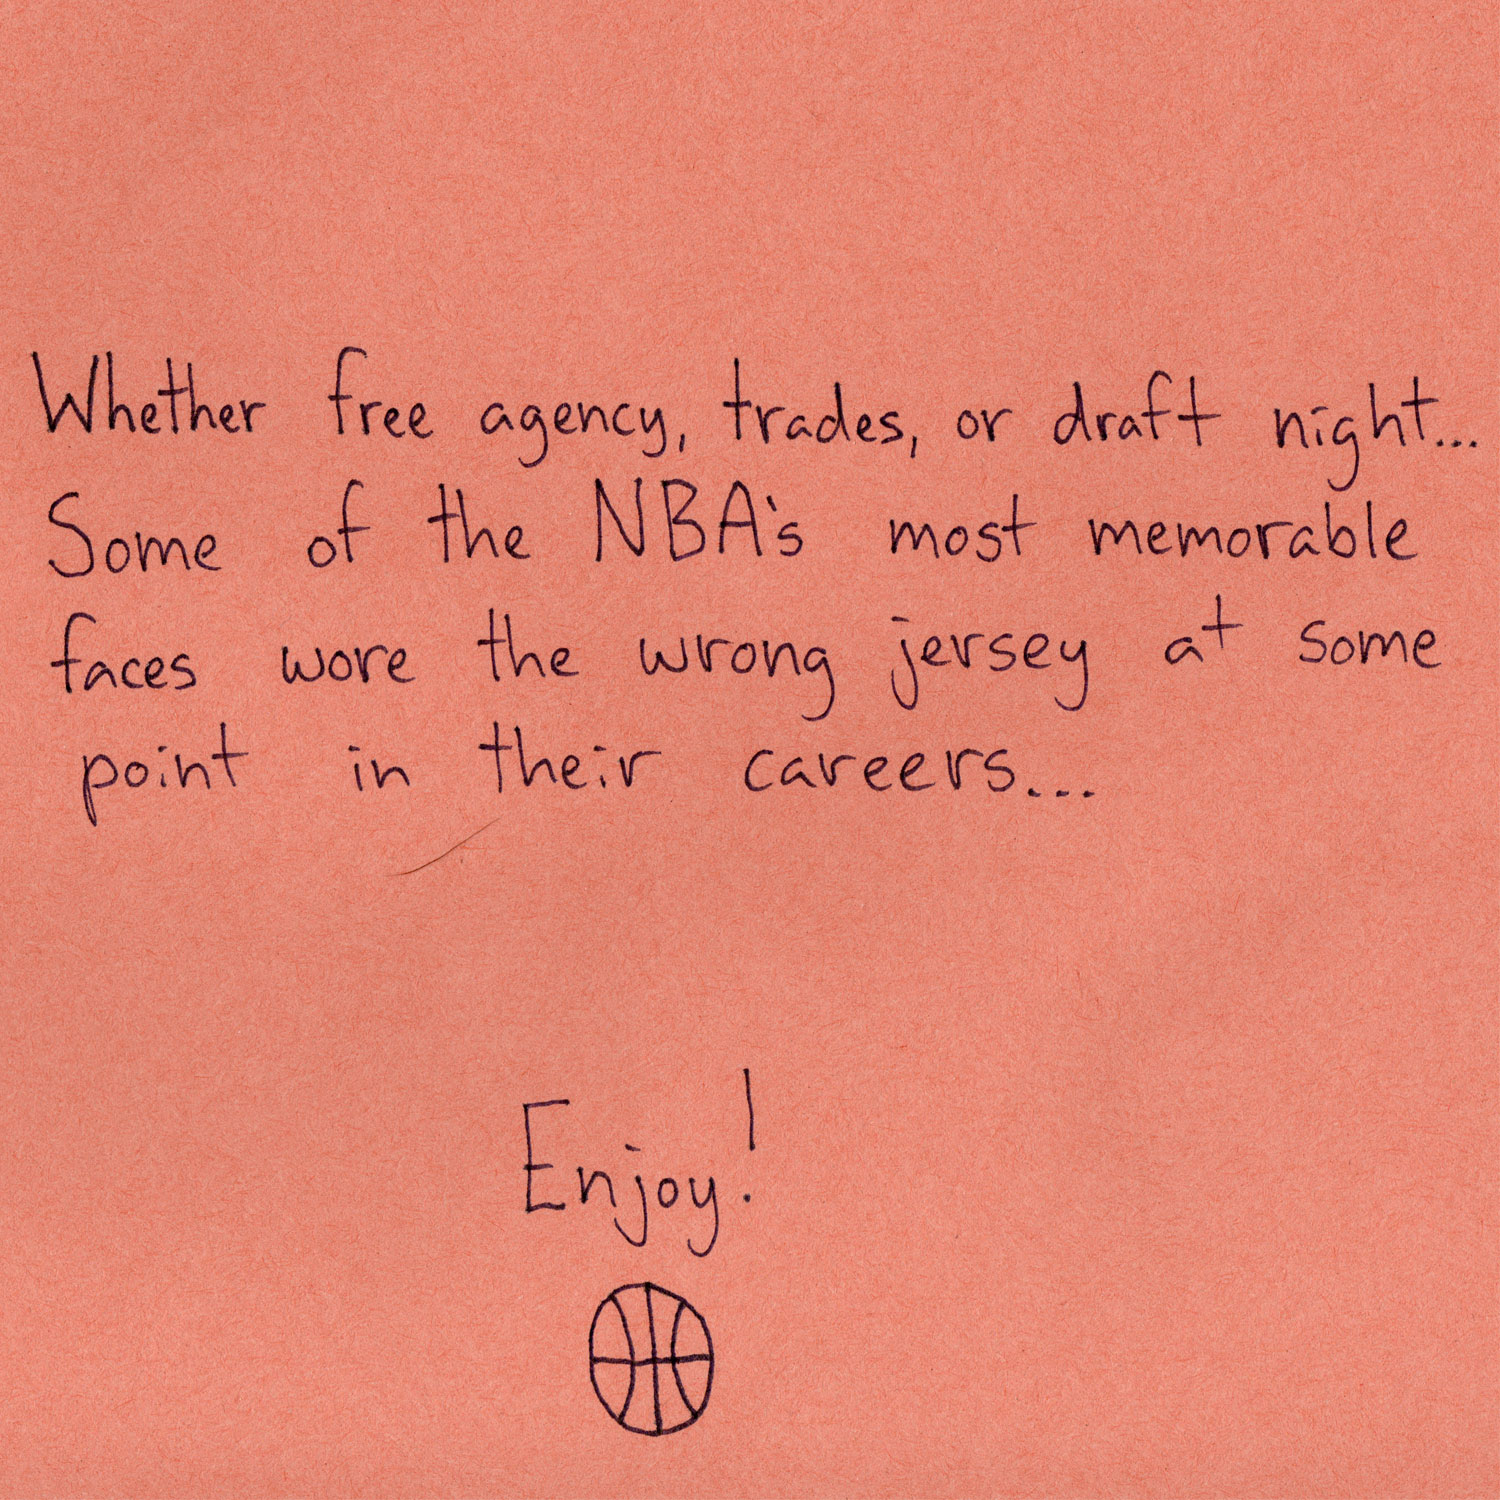 Whether free agency, trades, or draft night...
Some of the NBA's most memorable
faces wore the wrong jersey at some
point in their careers...
Enjoy!